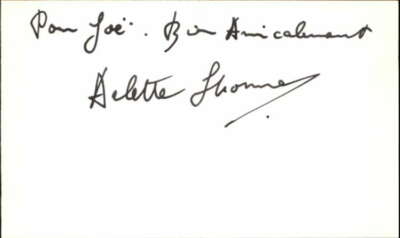 Pour Joë. Bien Amicalement
Arlette Thomas